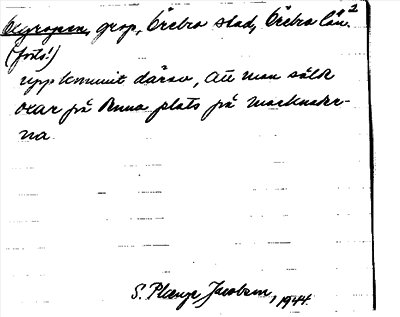 Oxgropen, grop, Örebro stad, Örebro län. 2
(forts!)
uppkommit därav, att man sålde
oxar på denna plats på marknader-
na.
S. Plænge Jacobson, 1944.